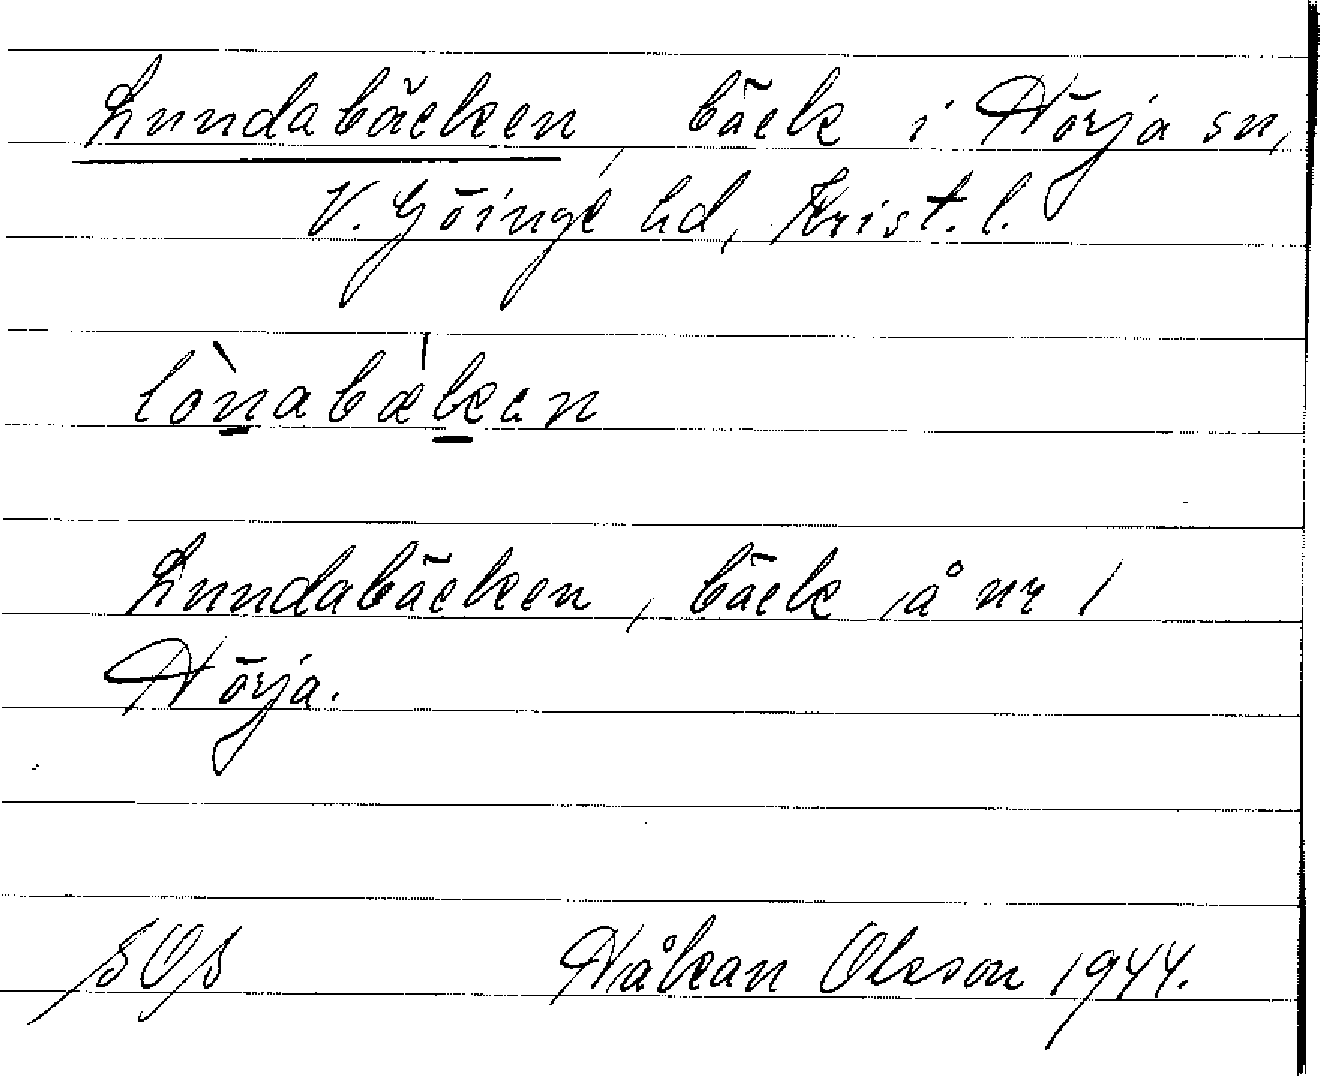 Lundabäcken, bäck i Hörja sn,
V. Göinge hd, Krist. l.
lònabækan
Lundabäcken, bäck å nr 1
Hörja.
SOS Håkan Olsson 1944.